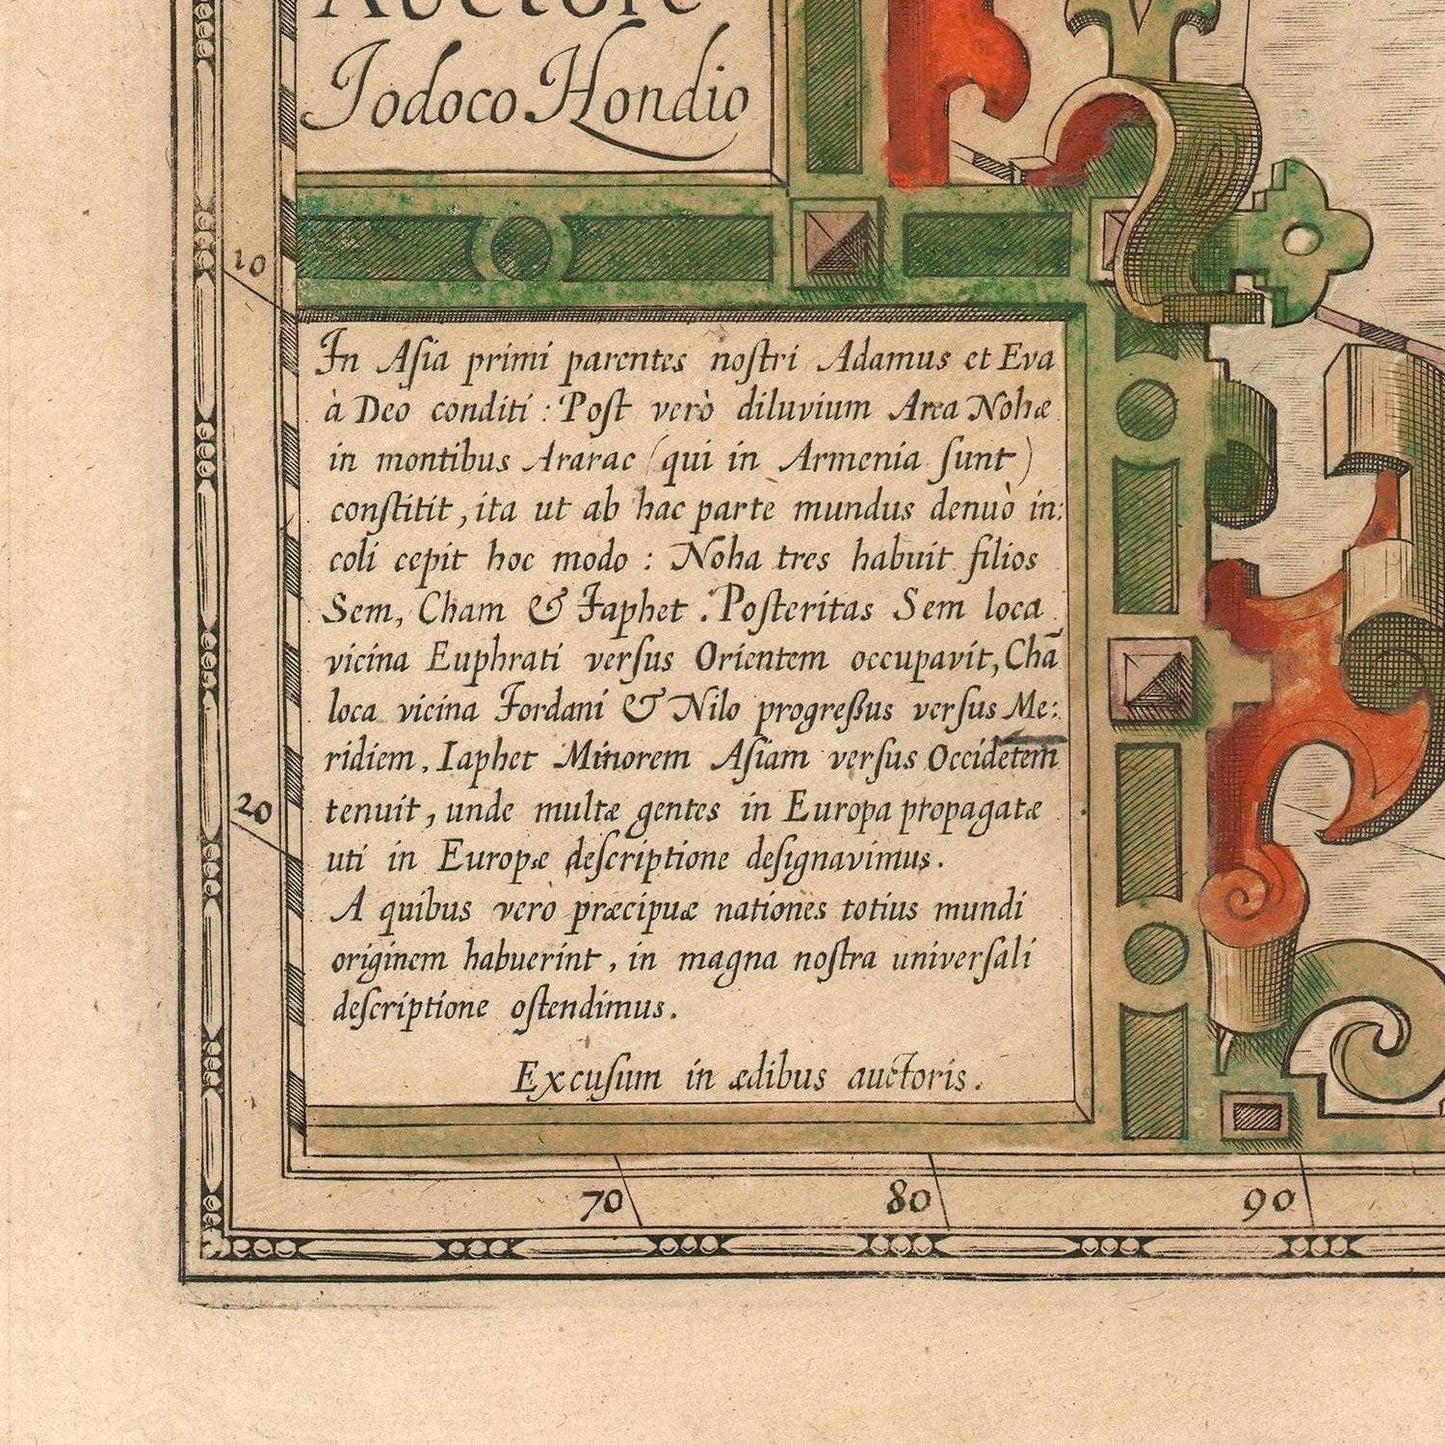 Auctore
Iodoco Hondio
10
In Aſia primi parentes noſtri Adamus et Eva
à Deo conditi : Poſt verò diluvium Arca Nohæ
in montibus Ararac (qui in Armenia ſunt)
conſtitit, ita ut ab hac parte mundus denuò in:
coli cepit hoc modo : Noha tres habuit filios
Sem, Cham & Iaphet . Poſteritas Sem loca
vicina Euphrati verſus Orientem occupavit, Chā
loca vicina Iordani & Nilo progreßus verſus Me:
ridiem, Iaphet Minorem Aſiam verſus Occidētem
tenuit, unde multæ gentes in Europa propagatæ
20
uti in Europæ deſcriptione deſignavimus.
A quibus verò præcipuæ nationes totius mundi
originem habuerint, in magna noſtra univerſali
deſcriptione oſtendimus.
Excuſum in ædibus auctoris.
70 80 90